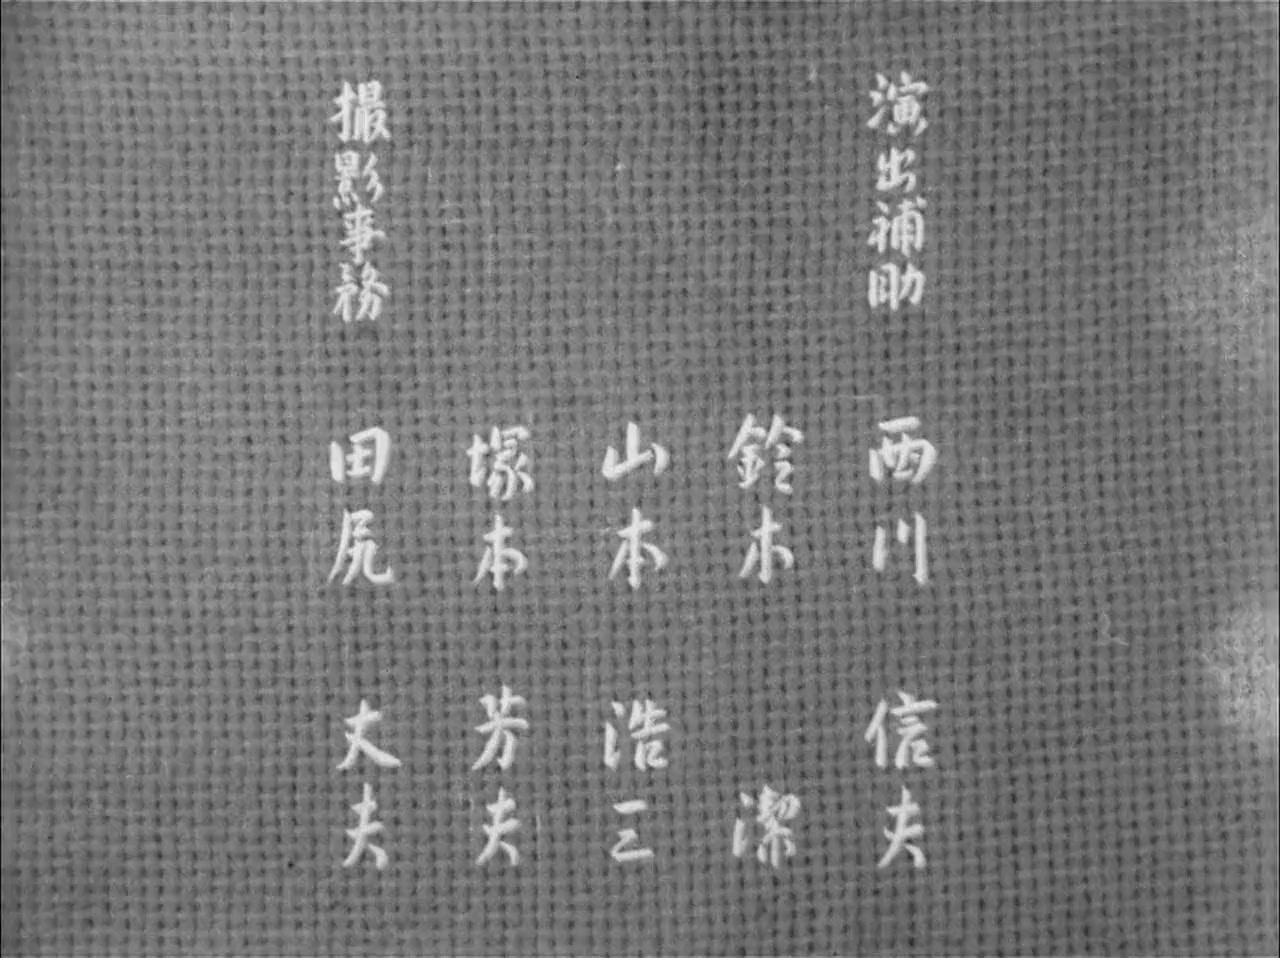 演出補助
西川信夫
鈴木潔
山本浩三
塚本芳夫
撮影事務
田尻丈夫